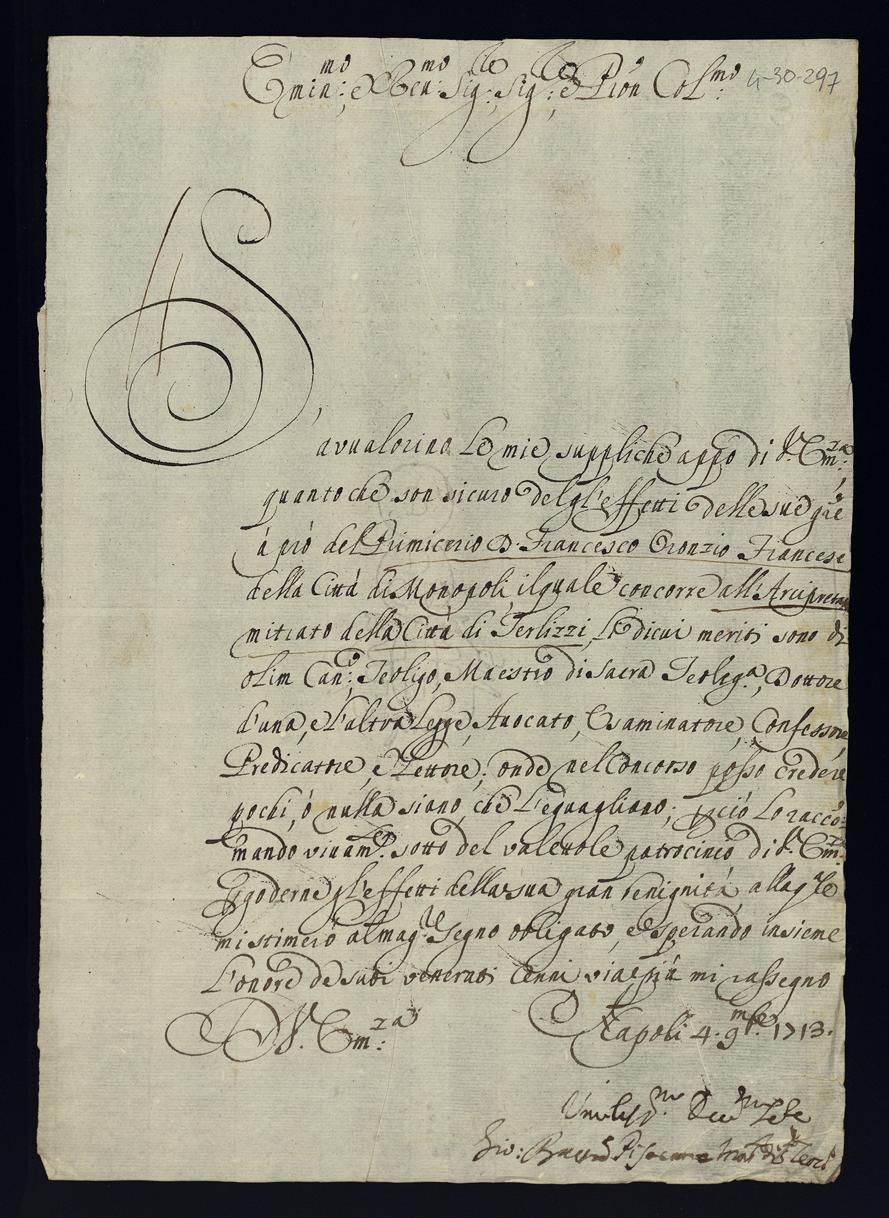 Emin:mo, e Ren:mo Sig:re, Sig:re, e Pron Col:mo
4-30-297
S'avvalorino le mie suppliche appo di V. Em:za,
quanto che son sicuro delgl'effetti delle sue grẽ
à prò del Primicerio D. Francesco Oronzio Francese
della Città di Monopoli, il quale concorre all'Arcipreta
mitiato della Città di Terlizzi, li di cui meriti sono di
olim Can:co Teoligo, Maestro di Sacra Teolog:a, Dottore
d'una, e l'altra Legge, Avocato, Esaminatore, Confessore,
Predicatore, e Lettore; onde nel Concorso posso credere
pochi, ò nulla siano, che l'eguagliano; perciò lo racco:
mando vivam:te sotto del valevole patrocinio di V. Em:za
p goderne gl'effetti della sua gran benignità, alla q:le
mi stimerò al mag:re segno obligato, e sperando insieme
l'onore de suoi venerati cenni via più mi rassegno
D. V. Em:za
Napoli 4. 9mbre 1713.
Gio: